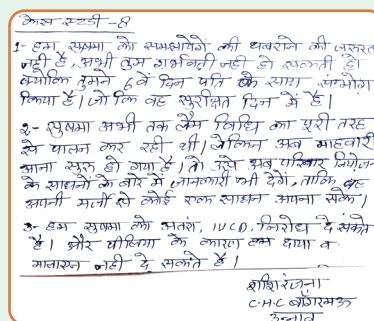 केस-स्टडी -8
1- हम सुषमा को समझायेगें की घबराने की जरूरत
नहीं है, अभी तुम गर्भवती नही हो सकती हो
क्योंकि तुमने 6 वें दिन पति के साथ संम्भोग
किया है। जो कि वह सुरक्षित दिन में है।
2- सुषमा अभी तक लैम विधि का पूरी तरह
से पालन कर रही थी। लेकिन अब माहवारी
आना सुरू हो गया है। तो उसे अब परिवार नियोजन
के साधनों के बारे में जानकारी भी देगें, ताकि वह
अपनी मर्जी से कोई एक साधन अपना सके।
3- हम सुषमा को अतंरा, IUCD, निरोध दे सकते
है। और पीलिया के कारण हम छाया व
मालाएन नही दे सकते है।
शशि रंजना
C.H.C बाँगरमऊ
उन्नाव